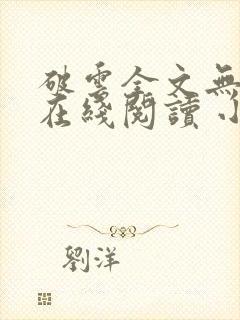 破雲全文無
在綫閱讀 小
劉洋